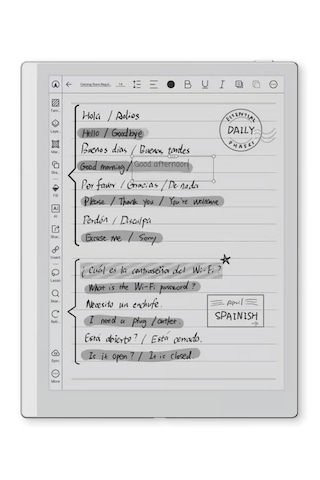 B U I
Hola / Adios
Hello / Goodbye
Buenos dias / Buenas tardes
Good morning / Good afternoon
Por favor / Gracias / De nada
Please / Thank you / You're welcome
Perdón / Disculpa
Excuse me / Sorry
ESSENTIAL
DAILY
PHASES
¿Cuál es la contraseña del Wi-Fi ?
What is the Wi-Fi password ?
Necesito un enchufe.
I need a plug /outlet
Está abierto? / Está cerrado.
Is it open? / It is closed.
SPAINISH
Fill
AI
Insert
Lasso
Sync
More